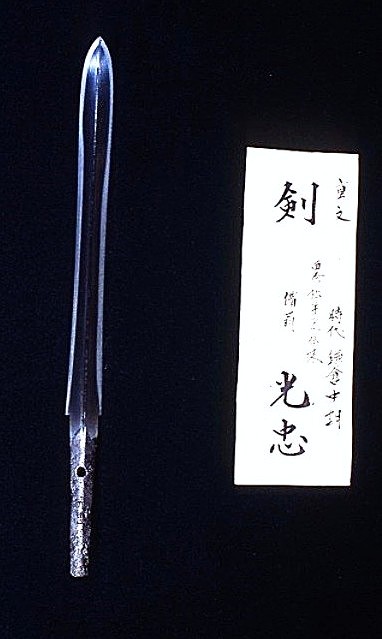 重文
時代 鎌倉中期
剣 備前 光忠